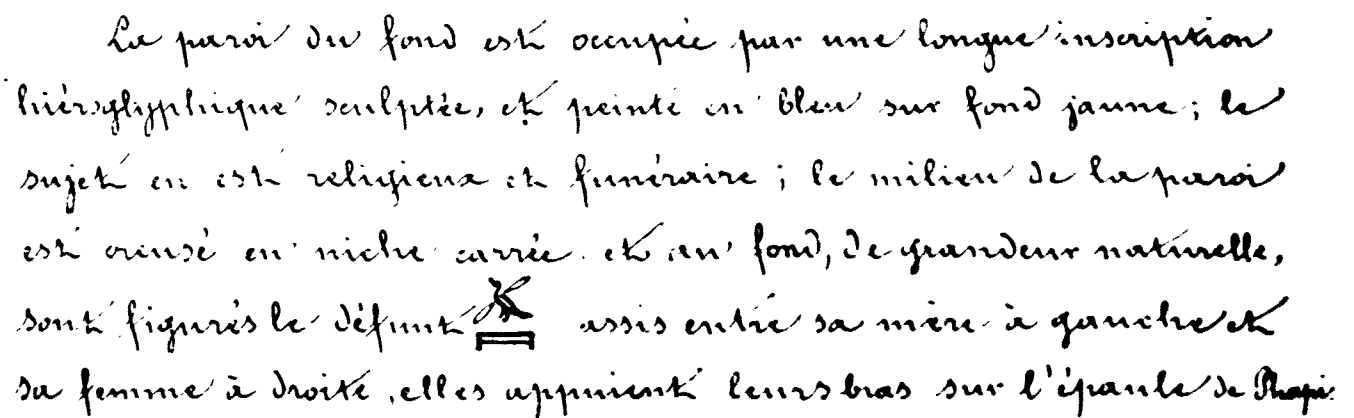 La paroi du fond est occupée par une longue inscription
hiéroglyphique sculptée, et peinte en bleu sur fond jaune; le
sujet en est religieux et funéraire; le milieu de la paroi
est creusé en niche carrée et au fond, de grandeur naturelle,
sont figurés le défunt assis entre sa mère à gauche et
sa femme à droite, elles appuient leurs bras sur l'épaule de Phapi.